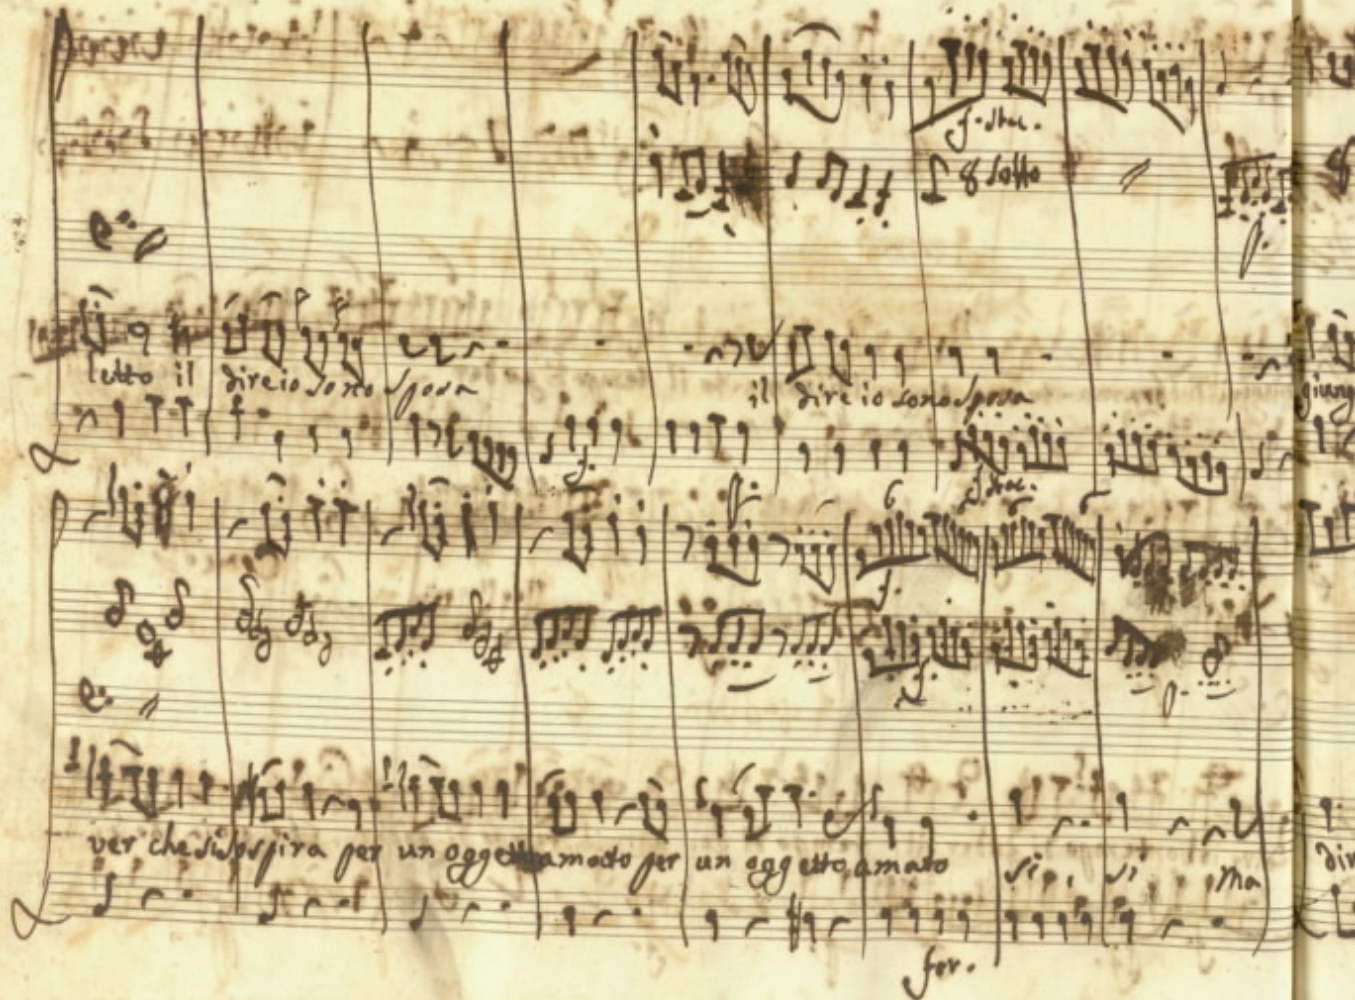 f. stac.
8 sotto
p.
letto il dire io sono sposa il dire io sono sposa giung
f.
f. stac.
p.
6
f.
f.
p.
ver che si sospira per un oggetto amato per un oggetto amato si, si ma dir
for.